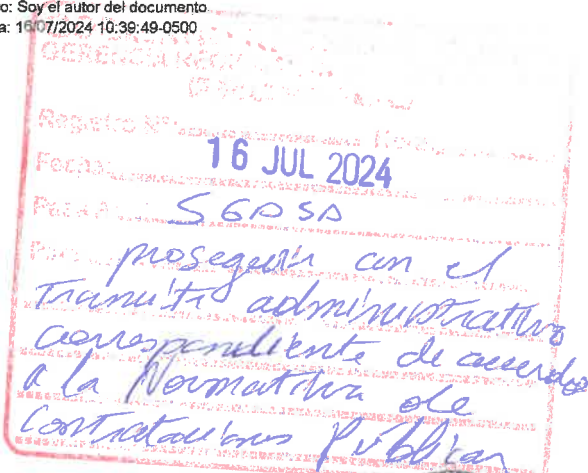 ro: Soy el autor del documento
a: 16/07/2024 10:39:49-0500
GERENCIA
Registro N°
Fecha:
16 JUL 2024
Pase a
SGASA
Para
proseguir con el
Tramite administrativo
correspondiente de acuerdo
a la Normativa de
Contrataciones Publicas